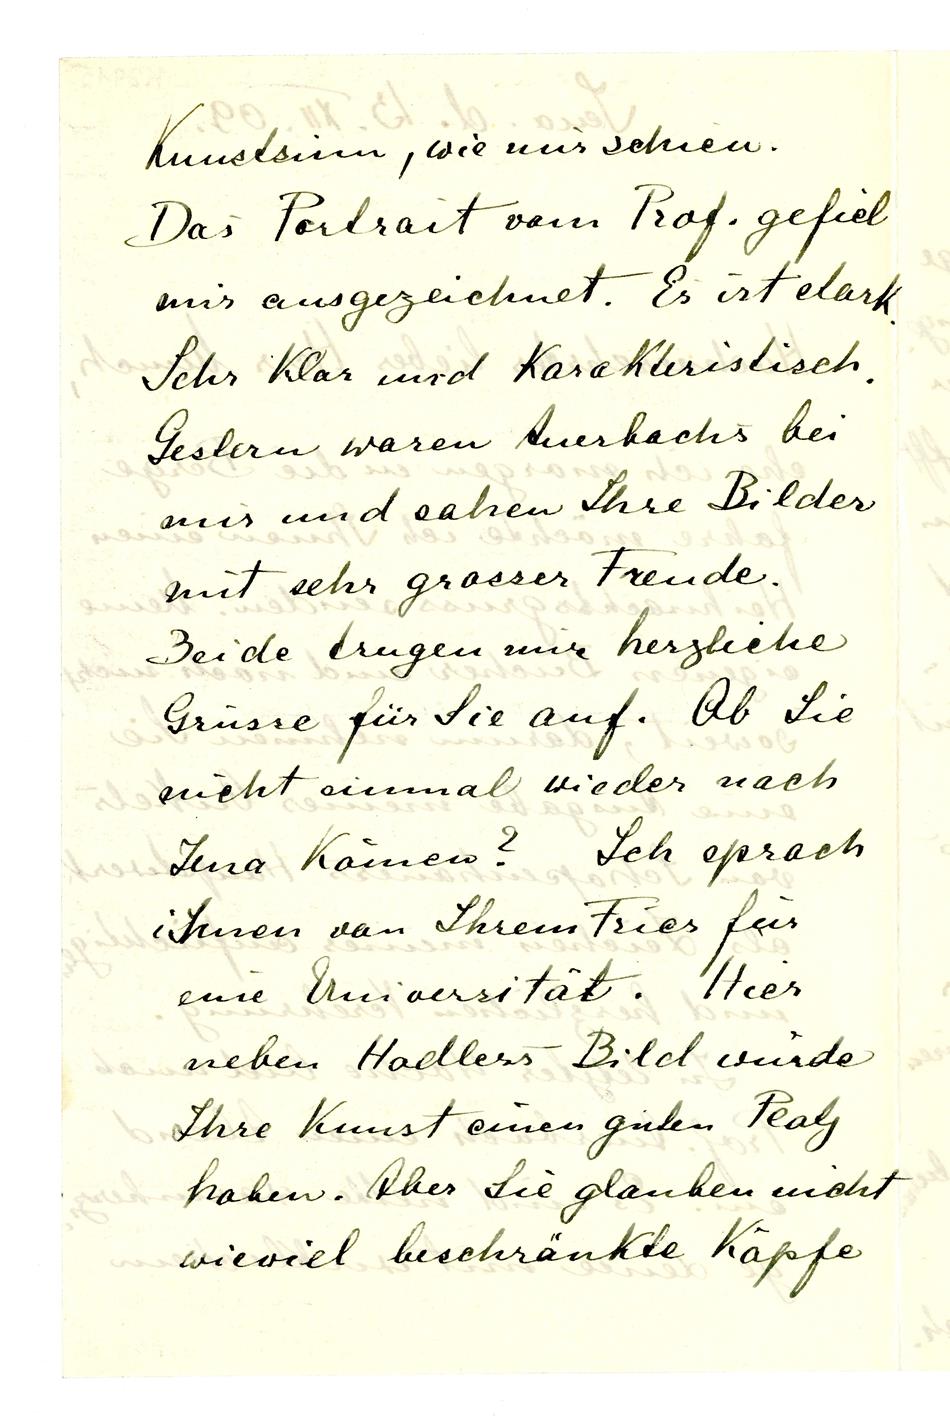 Kunstsinn, wie mir schien.
Das Portrait vom Prof. gefiel
mir ausgezeichnet. Es ist stark.
Sehr Klar und Karakteristisch.
Gestern waren Auerbachs bei
mir und sahen Ihre Bilder
mit sehr grosser Freude.
Beide trugen mir herzliche
Grüsse für Sie auf. Ob Sie
nicht einmal wieder nach
Jena kömen? Ich sprach
ihnen von Ihrem Fries für
eine Universität. Hier
neben Hodlers Bild würde
Ihre Kunst einen guten Platz
haben. Aber Sie glauben nicht
wieviel beschränkte Köpfe